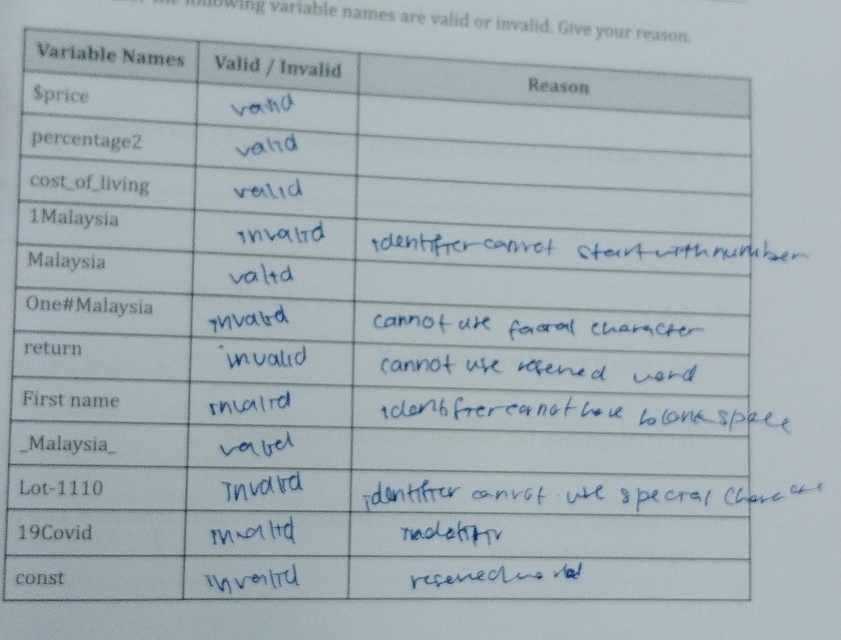 the following variable names are valid or invalid. Give your reason.
Variable Names Valid / Invalid Reason
$price valid
percentage2 valid
cost_of_living valid
1Malaysia invalid identifier cannot start with number
Malaysia valid
One#Malaysia invalid cannot use character
return invalid cannot use reserved word
First name invalid identifier cannot have blank space
_Malaysia_ valid
Lot-1110 invalid identifier cannot use special character
19Covid invalid
const invalid reserved word